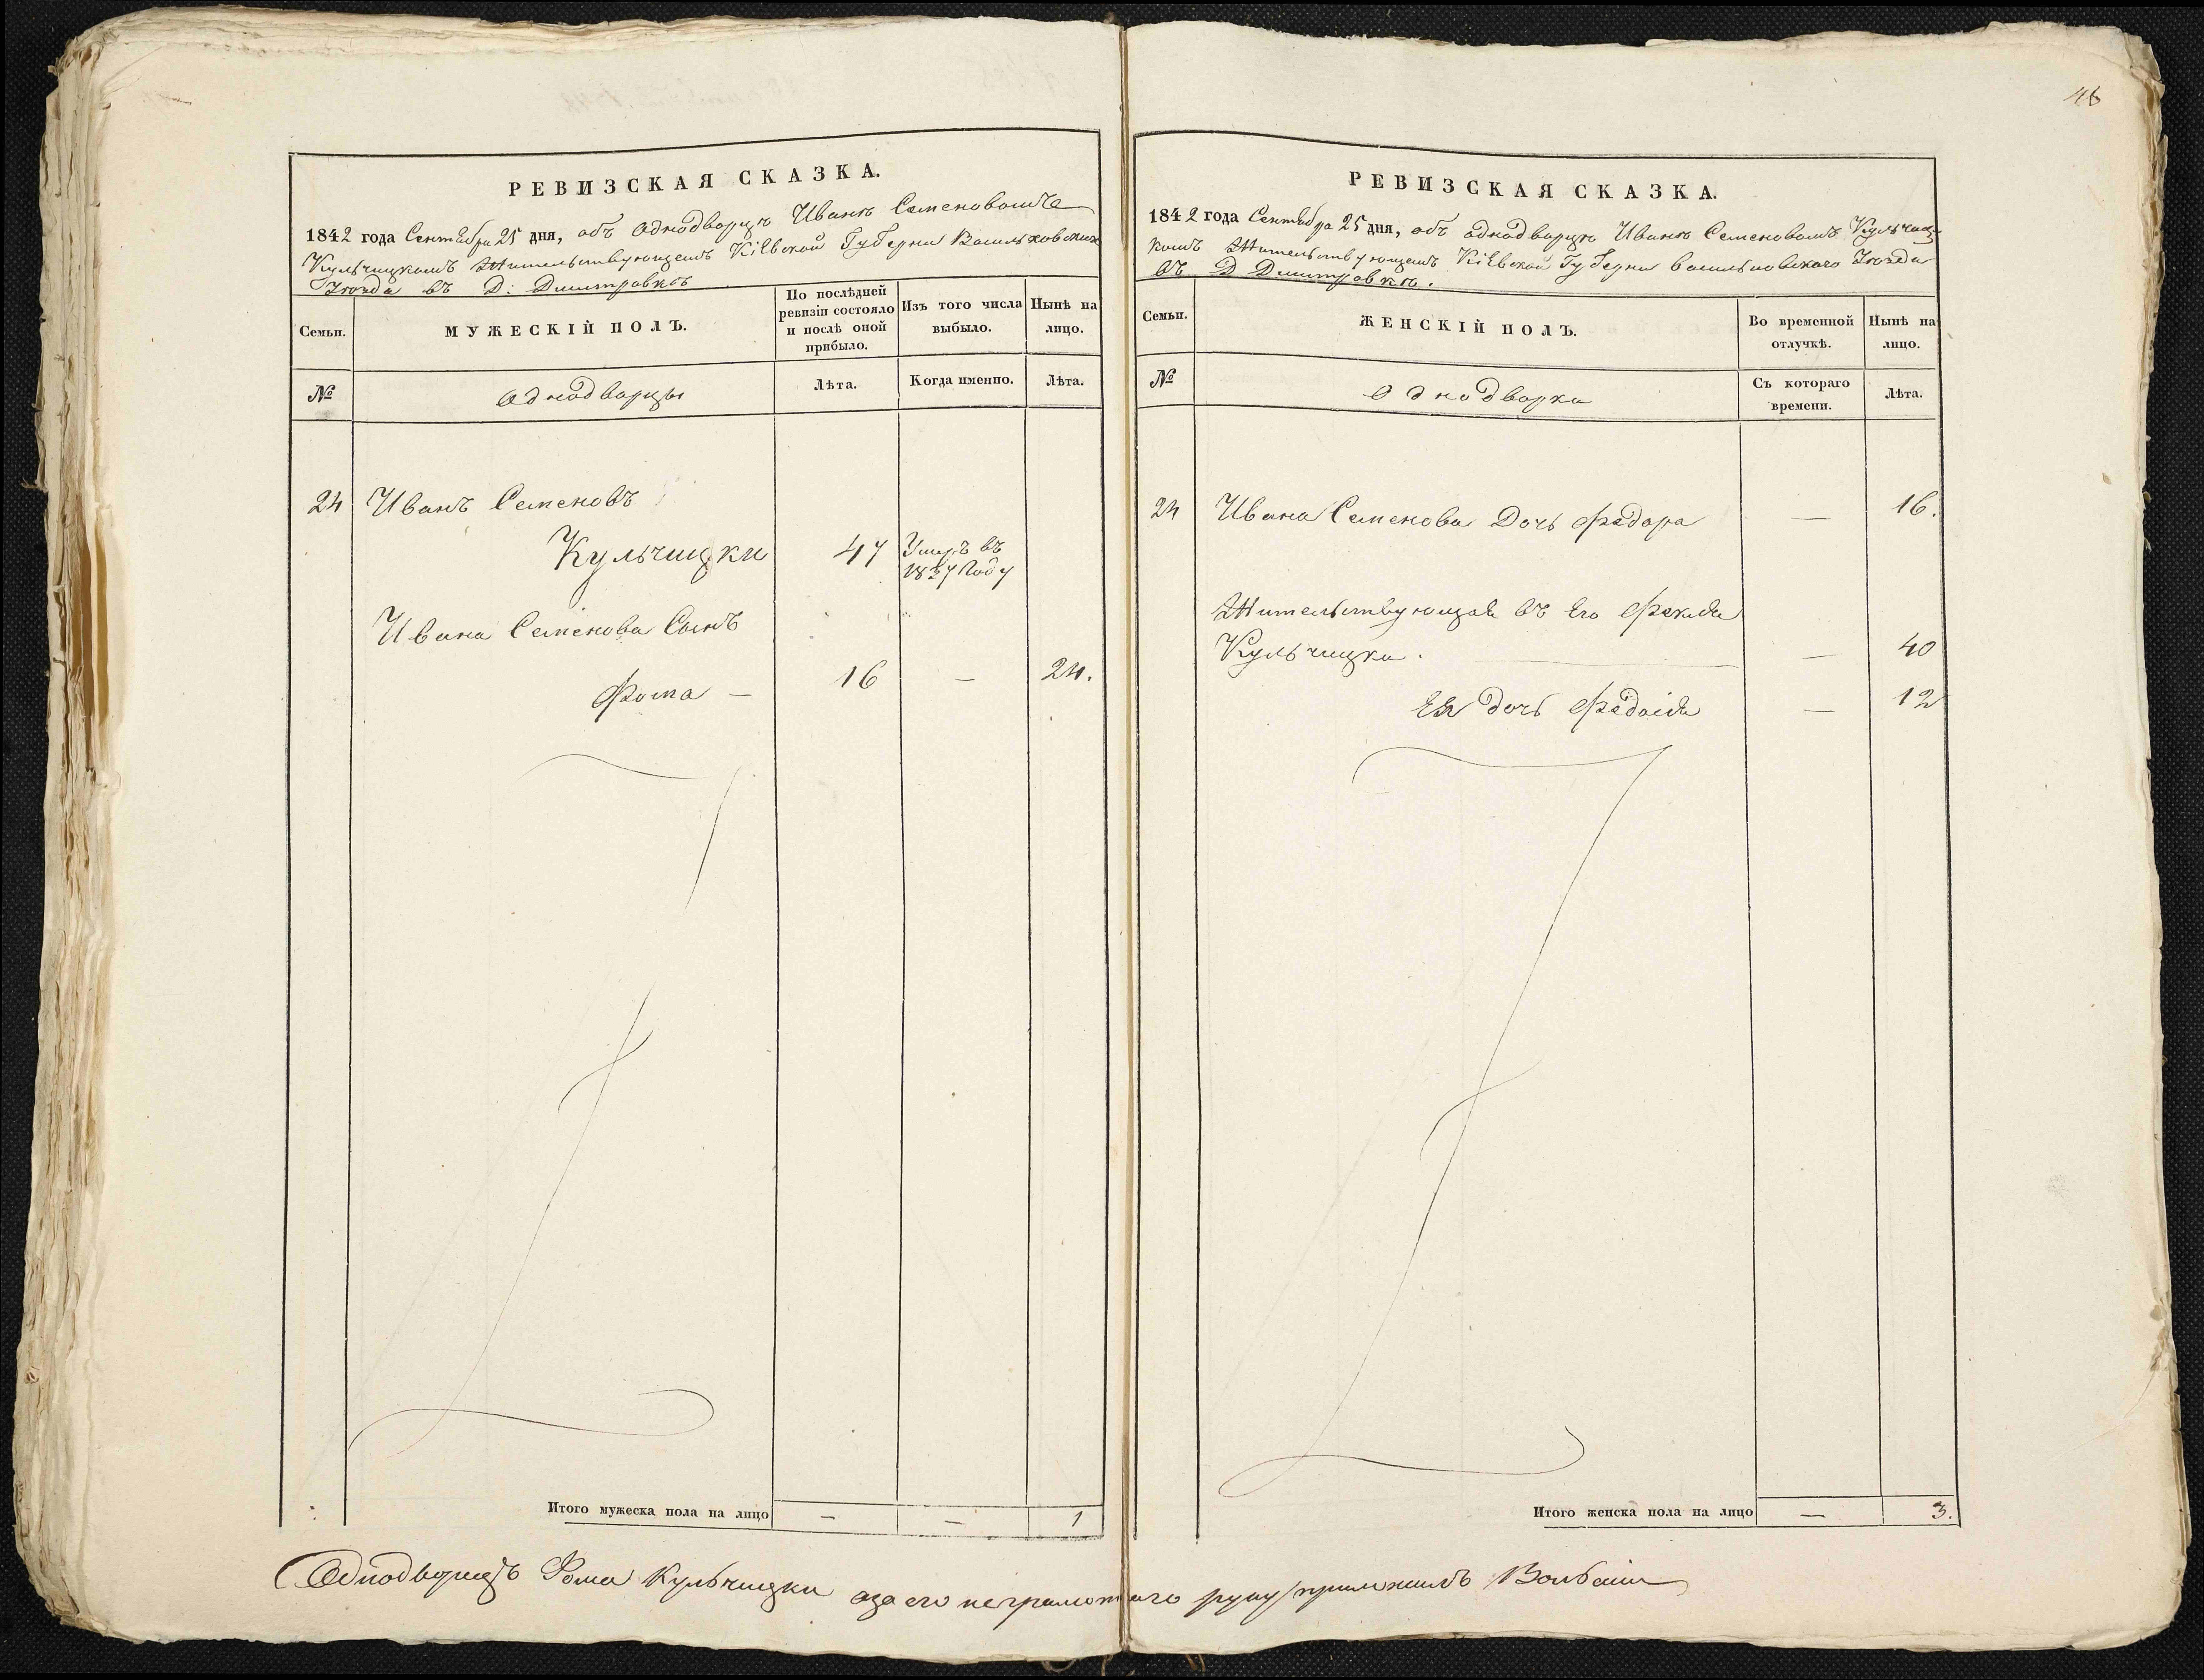 РЕВИЗСКАЯ СКАЗКА.
1842 года Сентября 25 дня, объ однодворцѣ Иванѣ Семеновомъ
Кульчицкомъ Жительствующемъ Кіевской Губерни Васильковских
Уѣзда въ Д: Дмитровкѣ
Семьи.
МУЖЕСКІЙ ПОЛЪ.
По послѣдней
ревизіи состояло
и послѣ оной
прибыло.
Изъ того числа
выбыло.
Нынѣ на
лицо.
№
однодворцы
Лѣта.
Когда именно.
Лѣта.
24 Иванъ Семеновъ
Кульчицки 47 Умеръ въ
1837 Году
Ивана Семенова Сынъ
Фома — 16 — 24.
Итого мужеска пола на лицо — — 1
48
РЕВИЗСКАЯ СКАЗКА.
1842 года Сентября 25 дня, объ однодворцѣ Иванѣ Семеновомъ Кульчиц
комъ Жительствующемъ Кіевской Губерни васильковского Уѣзда
въ Д Дмитровкѣ.
Семьи.
ЖЕНСКІЙ ПОЛЪ.
Во временной
отлучкѣ.
Нынѣ на
лицо.
№
Однодворки
Съ котораго
времени.
Лѣта.
24 Ивана Семенова Дочь Федора — 16.
Жительствующая въ Его Фекля
Кульчицка. — 40
Ея дочь Федосія — 12
Итого женска пола на лицо — 3.
Однодворецъ Фома Кульчицки азаего неграмотнаго руку приложилъ